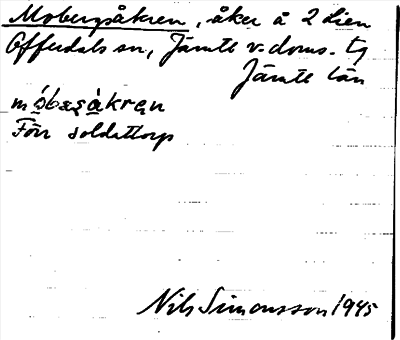 Mobergsåkren, åker å 2 Lien
Offerdals sn, Jämtl v. doms. tg
Jämtl län
mɷ́bæʂàkrən
Förr soldattorp
Nils Simonsson 1945